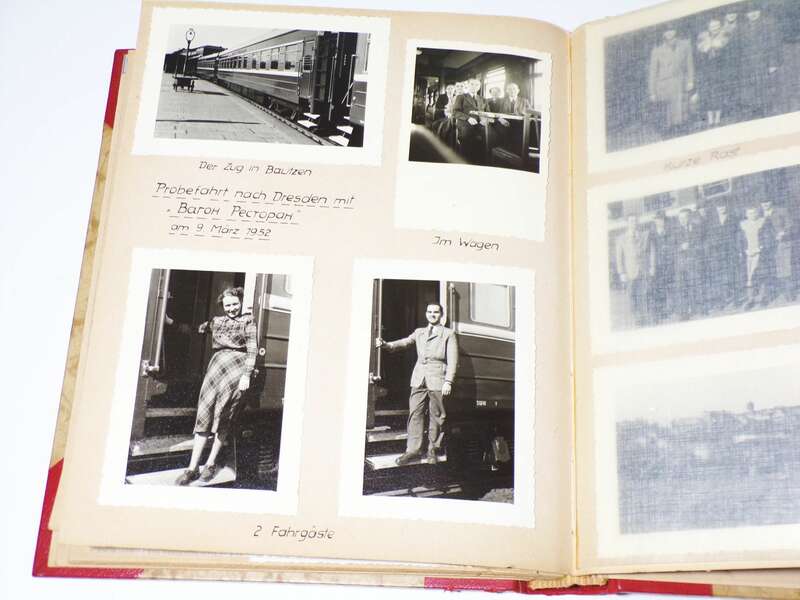 Der Zug in Bautzen
Probefahrt nach Dresden mit
"Вагон Ресторан"
am 9. März 1952
Im Wagen
2 Fahrgäste
Kurze Rast